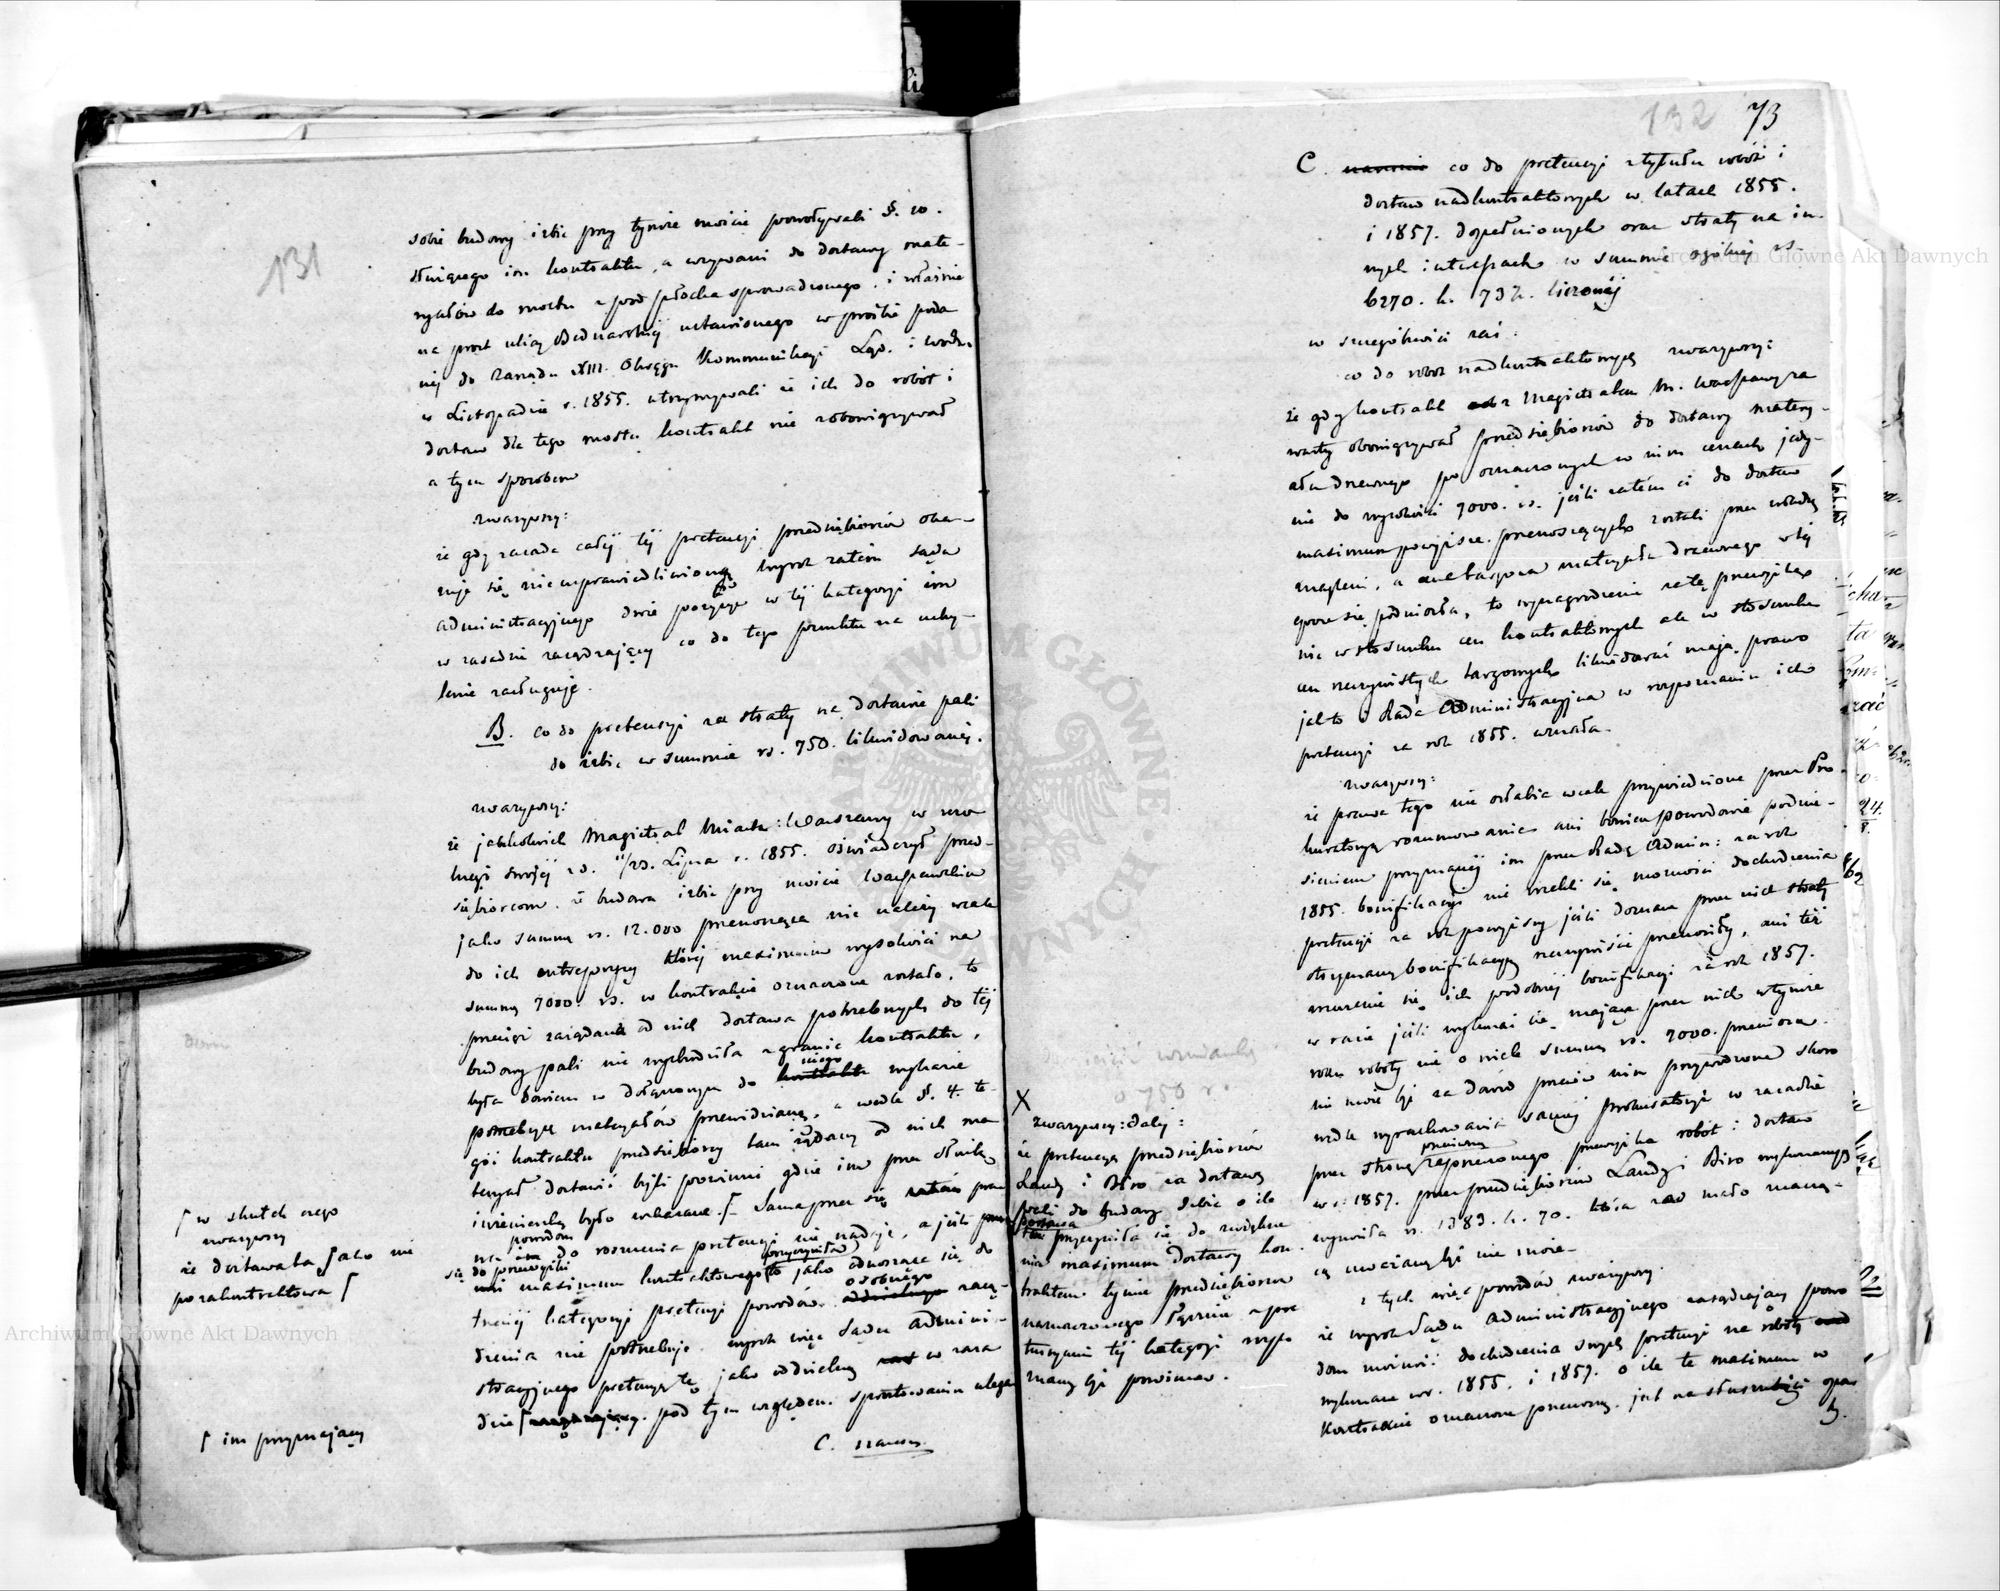 131
sobie budowy izbic przy tymże moście powoływali §. 10.
służącego im kontraktu, a wzywani do dostawy mate-
ryałów do mostu z pod Płocka sprowadzonego i właśnie
na prost ulicy Bednarskiej ustawionego w prośbie poda
nej do Zarządu XIII. Okręgu Kommunikacyi Ląd. i wodn.
w Listopadzie r. 1855. utrzymywali że ich do robót i
dostaw dla tego mostu kontrakt nie zobowiązywał
a tym sposobem
zważywszy:
że gdy zasada całej tej pretensyi przedsiębiorców oka-
zuje się nieusprawiedliwioną wyrok zatem Sądu
Administracyjnego dwie pozycye w tej kategoryi im
w zasadzie zasądzający co do tego punktu na uchy-
lenie zasługuje.
B. co do pretensyi za straty na dostawie pali
do izbic w summie rs. 750. likwidowanej.
zważywszy:
że jakkolwiek Magistrat Miasta: Warszawy w
swojej 11/23. Lipca r. 1855. oświadczył przed-
siębiorcom, że budowa izbic przy moście Warszawskim
jako summę rs. 12.000 przenosząca nie należy wcale
do ich entrepryzy której maximum wysokości na
summę 7000. rs. w kontrakcie oznaczone zostało, to
przecież zażądana od nich dostawa potrzebnych do tej
budowy pali nie wychodziła z granic kontraktu,
była bowiem w dołączonym do kontraktu niego wykazie
potrzebnych materyałów przewidzianą, a wedle §. 4. te-
goż kontraktu przedsiębiorcy tam żądany od nich ma
teryał dostawić byli powinni gdzie im przez służbę
inżynierską było wskazane. Sama przez się zatem
powodu do roszczenia pretensyi nie nadaje, a jeśli
się do przewyżki maximum kontraktowego przyczyniła to jako odnosząca się do
trzeciej kategoryi pretensyi powodów osobnego oddzielnego zasą-
dzenia nie potrzebuje. wyrok więc Sądu Admini-
stracyjnego pretensyę tę jako oddzielną w zasa
dzie zasądzający pod tym względem sprostowaniu ulega
C.
w skutek czego
zważywszy
że dostawa ta jako nie
pozakontraktowa
im przyznający
132 73
X
zważywszy: dalej:
że pretensya przedsiębiorców
Landy i Biro za dostawę
pali do budowy izbic o ile
dostawa ta przyczyniła się do zwiększe
nia maximum dostawy kon-
traktem tymże przedsiębiorcom
naznaczonego łącznie z pre
tensyami tej kategoryi
maną być powinna.
C. co do pretensyi z tytułu robót i
dostaw nadkontraktowych w latach 1855.
i 1857. dopełnionych oraz straty na in-
nych interesach w summie ogólnej rs.
6270. k. 73½. liczonej
w szczególności zaś:
co do robót nadkontraktowych zważywszy:
że gdy kontrakt z Magistratem M. Warszawy za
warty obowiązywał przedsiębiorców do dostawy matery-
ału drzewnego po oznaczonych w nim cenach jedy-
nie do wysokości 7000. rs. jeśli zatem ci do dostaw
maximum powyższe przenoszących zostali przez władzę
znagleni, a cena targowa materyału drzewnego w tej
epoce się podniosła, to wynagrodzenie za tę przewyżkę
nie w stosunku cen kontraktowych ale w stosunku
cen rzeczywistych targowych likwidować mają prawo
jak to i Rada Administracyjna w rozpoznaniu ich
pretensyi za rok 1855. uznała.
zważywszy:
że prawa tego nie osłabia wcale przywiedzione przez Pro
kuratoryę rozumowanie ani bowiem powodowie podnie-
sieniem przyznanej im przez Radę Admin: za rok
1855. bonifikacyi nie zrzekli się możności dochodzenia
pretensyi za rok powyższy jeśli doznane przez nich straty
otrzymaną bonifikacyę rzeczywiście przenosiły, ani też
zrzeczenie się ich podobnej bonifikacyi za rok 1857.
w razie jeśli wykonać się mające przez nich w tymże
roku roboty nie o wiele summę rs. 7000. przeniosą
nie może być za dowód przeciw nim przywodzone skoro
wedle wyrachowania samej Prokuratoryi w zasadzie
przez stronę przeciwną niezaprzeczonego przewyżka robót i dostaw
w r. 1857. przez przedsiębiorców Landy i Biro wykonanych
wynosiła rs. 1383. k. 70. która za mało znaczą-
cą uważaną być nie może.
z tych więc powodów zważywszy:
że wyrok Sądu Administracyjnego zasądzający powo
dom możność dochodzenia swych pretensyi za roboty
wykonane w r. 1855. i 1857. o ile te maximum w
kontrakcie oznaczone przenoszą, jest na słuszności opar
ty.